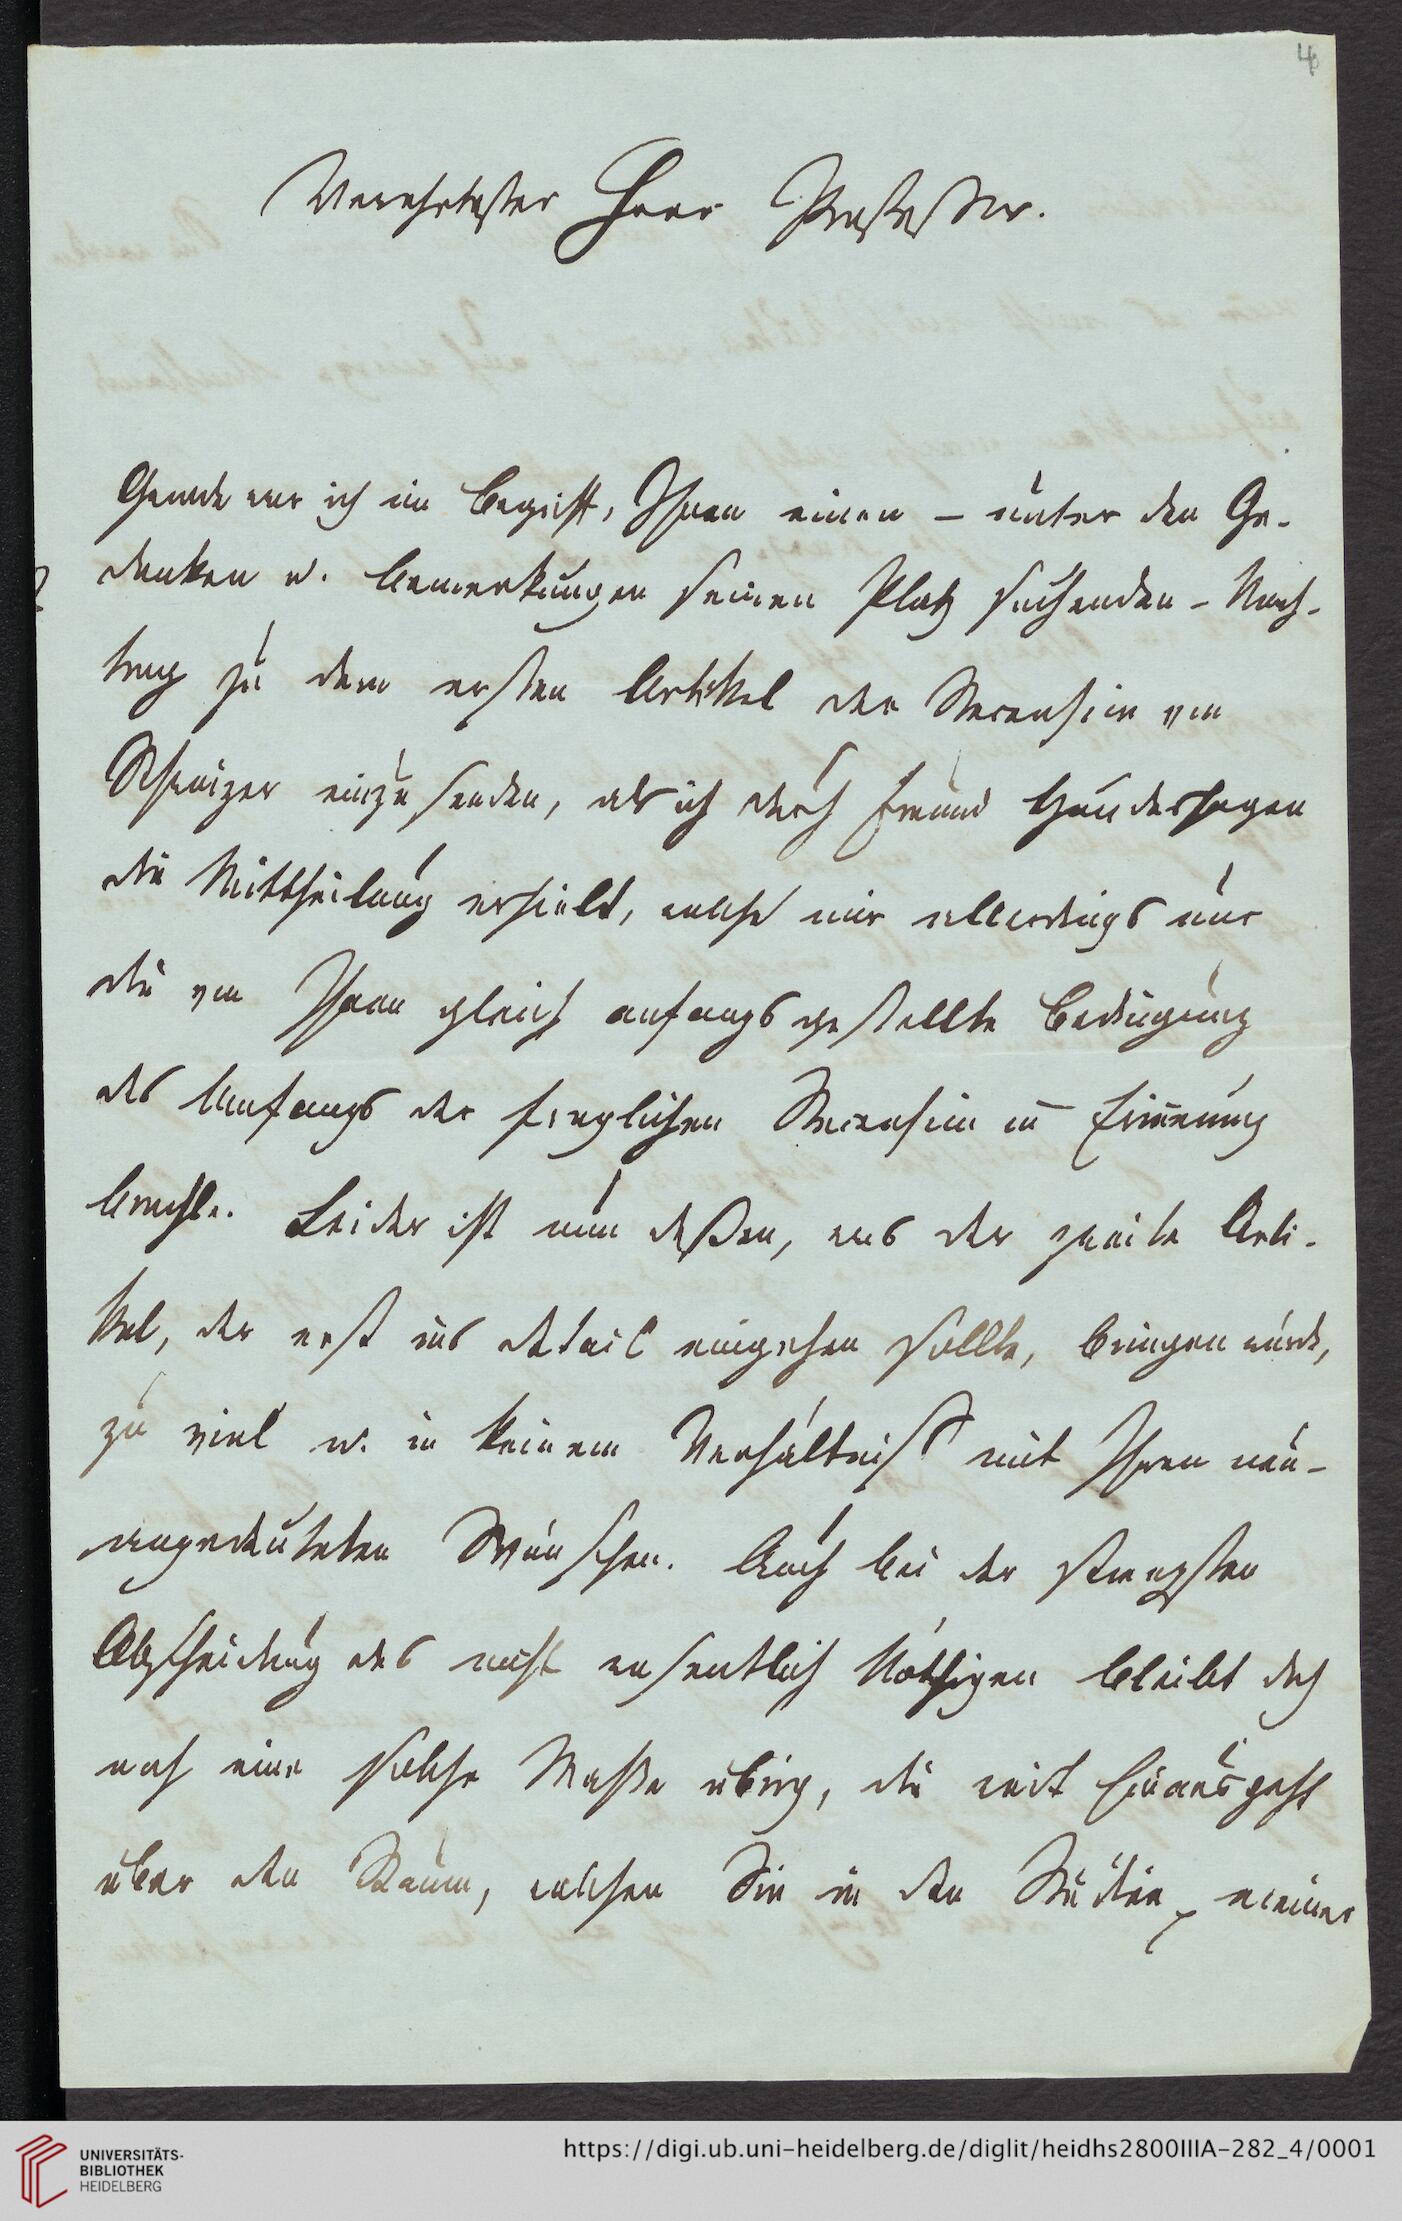 4
Verehrtester Herr Professor.
Gerade war ich im Begriff, Ihnen einen – unter den Ge-
danken u. Bemerkungen seinen Platz suchenden – Nach-
trag zu dem ersten Artikel der Recension von
Schweizer einzusenden, als ich durch Freund Hundeshagen
die Mittheilung erhielt, welche mir allerdings nur
die von Ihnen gleich anfangs gestellte Bedingung
des Umfangs der fraglichen Recension in Erinnerung
brachte. Leider ist nun deßen, was der zweite Arti-
kel, der erst ins detail eingehen sollte, bringen würde,
zu viel u. in keinem Verhältniß mit Ihren neu-
angedeuteten Wünschen. Auch bei der strengsten
Abscheidung des nicht wesentlich Nöthigen bleibt doch
noch eine solche Maße übrig, die weit hinausgeht
über den Raum, welchen Sie in den Studien meiner
UNIVERSITÄTS-
BIBLIOTHEK
HEIDELBERG
https://digi.ub.uni-heidelberg.de/diglit/heidhs2800IIIA-282_4/0001